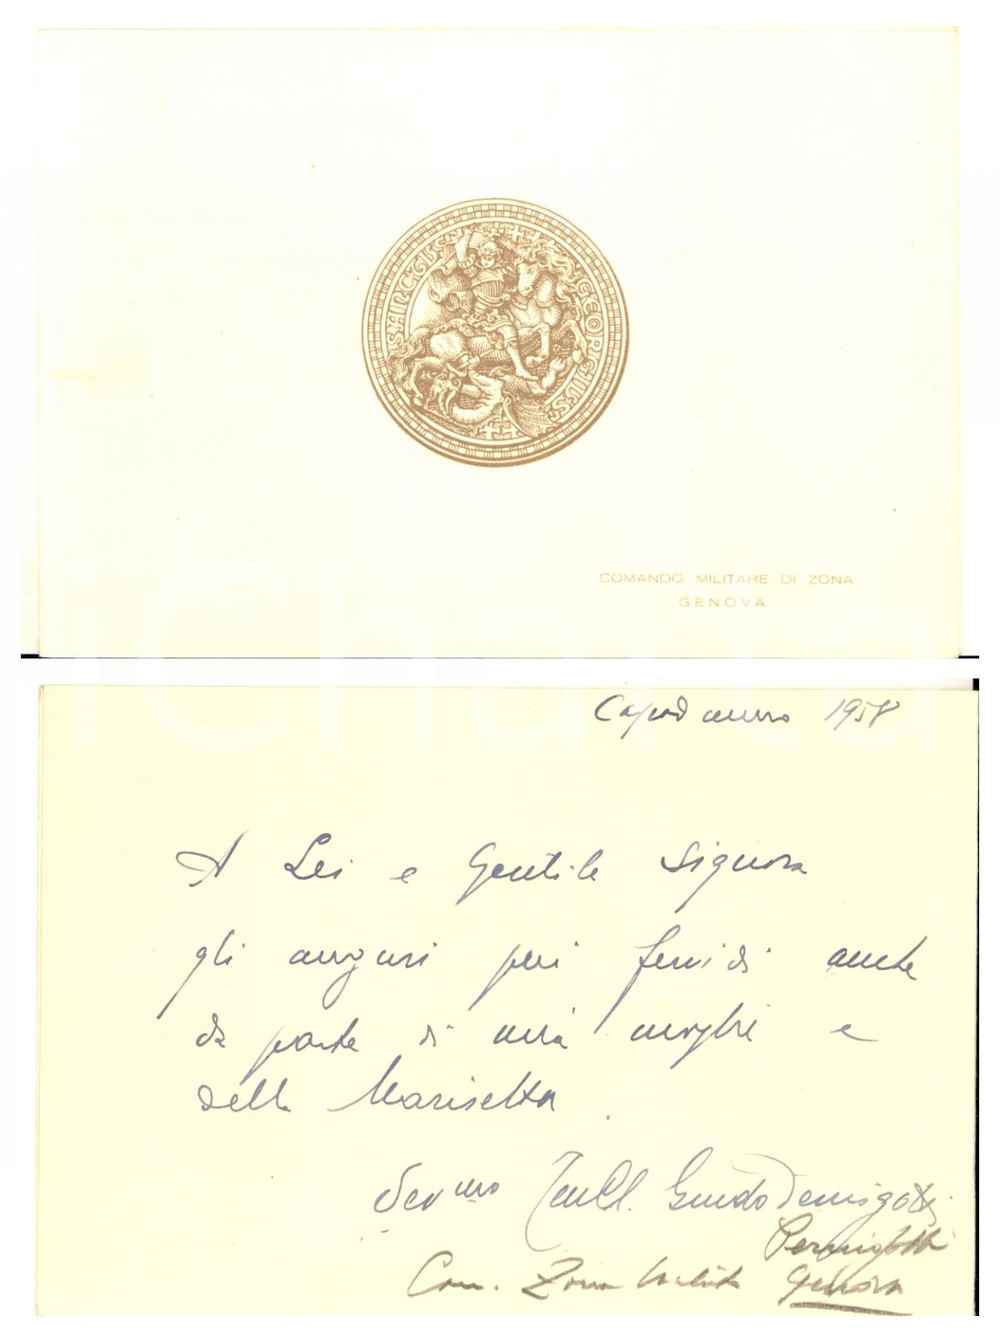 SANCTUS GEORGIUS
COMANDO MILITARE DI ZONA
GENOVA
iCharta
Capodanno 1958
A Lei e Gentile Signora
gli auguri più fervidi anche
da parte di mia moglie e
della Marisetta.
Dev mo Guido Pernigotti
Pernigotti
Com. Zona Militare Genova